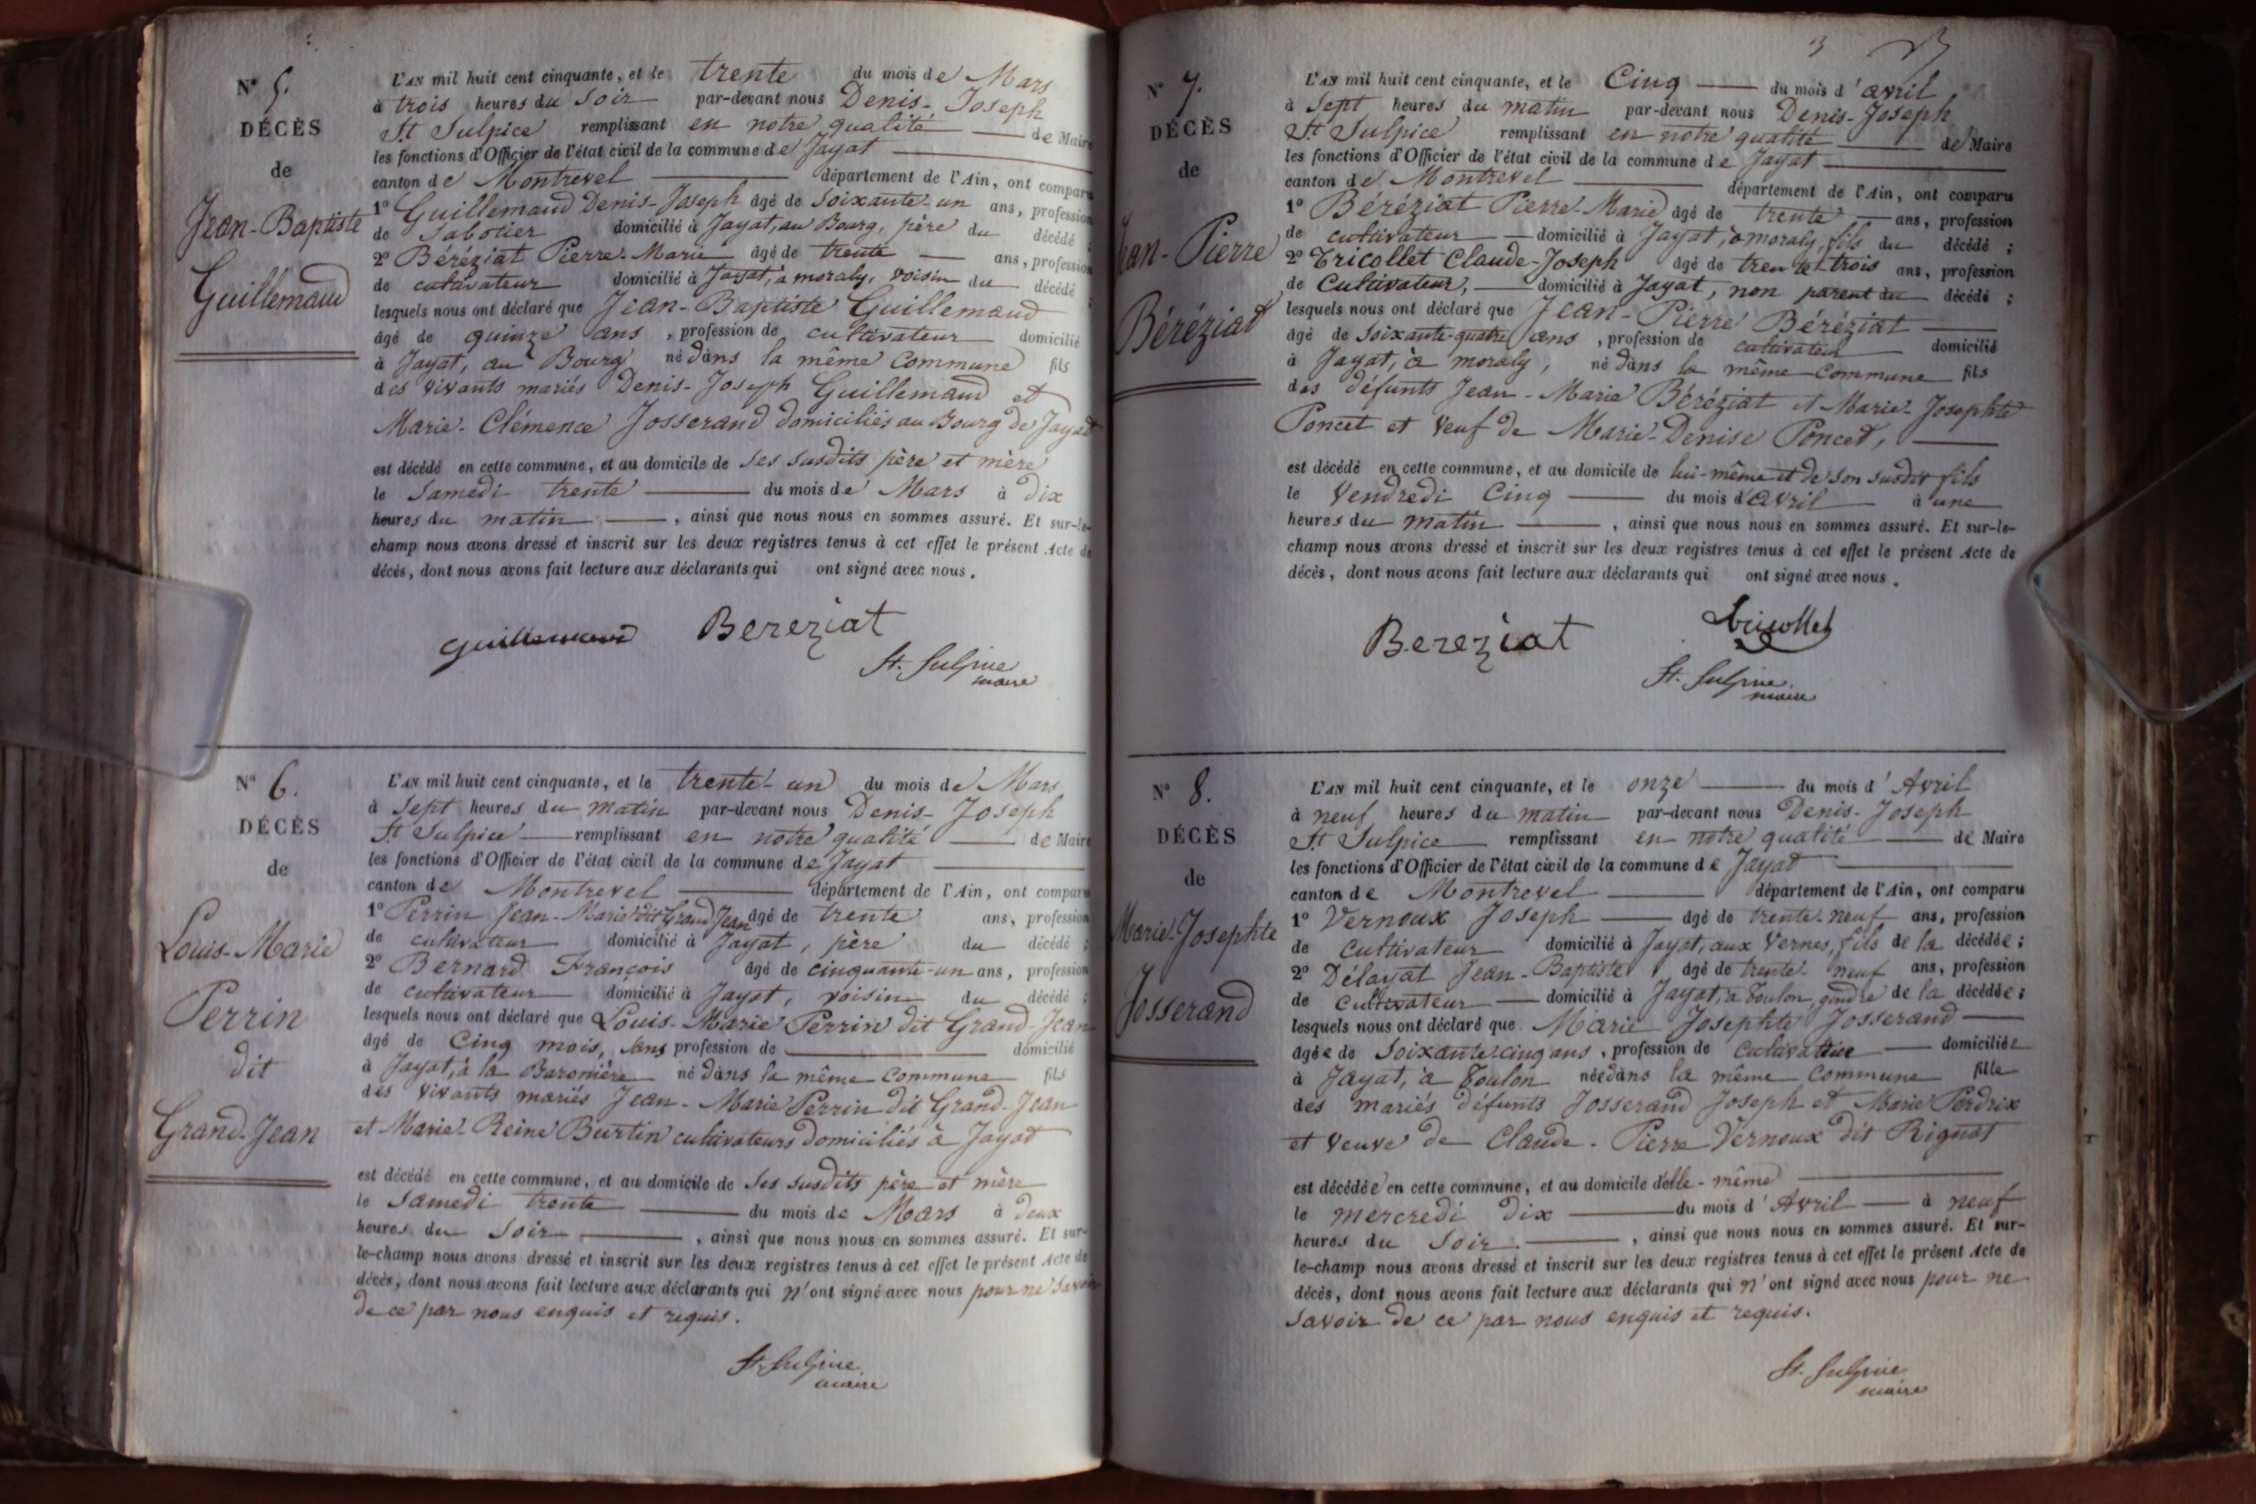 N° 5.
DÉCÈS
de
Jean-Baptiste
Guillemaud
L'AN mil huit cent cinquante, et le trente du mois de Mars
à trois heures du Soir par-devant nous Denis-Joseph
St Sulpice remplissant en notre qualité de Maire
les fonctions d'Officier de l'état civil de la commune de Jayat
canton de Montrevel département de l'Ain, ont comparu
1° Guillemaud Denis-Joseph âgé de Soixante-un ans, profession
de Sabotier domicilié à Jayat, au Bourg, père du décédé ;
2° Béréziat Pierre-Marie âgé de trente ans, profession
de cultivateur domicilié à Jayat, à moraly, voisin du décédé ;
lesquels nous ont déclaré que Jean-Baptiste Guillemaud
âgé de quinze ans, profession de cultivateur domicilié
à Jayat, au Bourg né dans la même Commune fils
des vivants mariés Denis-Joseph Guillemaud et
Marie-Clémence Josserand domiciliés au Bourg de Jayat
est décédé en cette commune, et au domicile de Ses susdits père et mère
le Samedi trente du mois de Mars à dix
heures du matin, ainsi que nous nous en sommes assuré. Et sur-le-
champ nous avons dressé et inscrit sur les deux registres tenus à cet effet le présent Acte de
décès, dont nous avons fait lecture aux déclarants qui ont signé avec nous.
Guillemaud Bereziat
St. Sulpice
maire
N° 6.
DÉCÈS
de
Louis-Marie
Perrin
dit
Grand-Jean
L'AN mil huit cent cinquante, et le trente-un du mois de Mars
à Sept heures du matin par-devant nous Denis-Joseph
St Sulpice remplissant en notre qualité de Maire
les fonctions d'Officier de l'état civil de la commune de Jayat
canton de Montrevel département de l'Ain, ont comparu
1° Perrin Jean-Marie dit Grand Jean âgé de trente ans, profession
de cultivateur domicilié à Jayat, père du décédé ;
2° Bernard François âgé de cinquante-un ans, profession
de cultivateur domicilié à Jayat, voisin du décédé ;
lesquels nous ont déclaré que Louis-Marie Perrin dit Grand-Jean
âgé de Cinq mois, sans profession de domicilié
à Jayat, à la Baronière né dans la même Commune fils
des vivants mariés Jean-Marie Perrin dit Grand-Jean
et Marie-Reine Burtin cultivateurs domiciliés à Jayat
est décédé en cette commune, et au domicile de Ses susdits père et mère
le Samedi trente du mois de Mars à deux
heures du Soir, ainsi que nous nous en sommes assuré. Et sur-
le-champ nous avons dressé et inscrit sur les deux registres tenus à cet effet le présent Acte de
décès, dont nous avons fait lecture aux déclarants qui n'ont signé avec nous pour ne Savoir
de ce par nous enquis et requis.
St. Sulpice
maire
3
N° 7.
DÉCÈS
de
Jean-Pierre
Béréziat
L'AN mil huit cent cinquante, et le Cinq du mois d'avril
à Sept heures du matin par-devant nous Denis-Joseph
St Sulpice remplissant en notre qualité de Maire
les fonctions d'Officier de l'état civil de la commune de Jayat
canton de Montrevel département de l'Ain, ont comparu
1° Béréziat Pierre-Marie âgé de trente ans, profession
de cultivateur domicilié à Jayat, à moraly, fils du décédé ;
2° Tricollet Claude-Joseph âgé de trente-trois ans, profession
de Cultivateur, domicilié à Jayat, non parent du décédé ;
lesquels nous ont déclaré que Jean-Pierre Béréziat
âgé de Soixante-quatre ans, profession de cultivateur domicilié
à Jayat, à moraly, né dans la même Commune fils
des défunts Jean-Marie Béréziat et Marie-Josephte
Poncet et Veuf de Marie-Denise Poncet,
est décédé en cette commune, et au domicile de lui-même et de son susdit fils
le Vendredi Cinq du mois d'avril à une
heures du matin, ainsi que nous nous en sommes assuré. Et sur-le-
champ nous avons dressé et inscrit sur les deux registres tenus à cet effet le présent Acte de
décès, dont nous avons fait lecture aux déclarants qui ont signé avec nous.
Bereziat Tricollet
St. Sulpice
maire
N° 8.
DÉCÈS
de
Marie-Josephte
Josserand
L'AN mil huit cent cinquante, et le onze du mois d'Avril
à neuf heures du matin par-devant nous Denis-Joseph
St Sulpice remplissant en notre qualité de Maire
les fonctions d'Officier de l'état civil de la commune de Jayat
canton de Montrevel département de l'Ain, ont comparu
1° Vernoux Joseph âgé de trente-neuf ans, profession
de Cultivateur domicilié à Jayat, aux Vernes, fils de la décédée ;
2° Délayat Jean-Baptiste, âgé de trente-neuf ans, profession
de Cultivateur domicilié à Jayat, à Toulon, gendre de la décédée ;
lesquels nous ont déclaré que Marie Josephte Josserand
âgée de Soixante-cinq ans, profession de cultivatrice domiciliée
à Jayat, à Toulon née dans la même Commune fille
des mariés défunts Josserand Joseph et Marie Perdrix
et veuve de Claude-Pierre Vernoux dit Rignat
est décédée en cette commune, et au domicile d'elle-même
le mercredi dix du mois d'Avril à neuf
heures du Soir, ainsi que nous nous en sommes assuré. Et sur-
le-champ nous avons dressé et inscrit sur les deux registres tenus à cet effet le présent Acte de
décès, dont nous avons fait lecture aux déclarants qui n'ont signé avec nous pour ne
Savoir de ce par nous enquis et requis.
St. Sulpice
maire